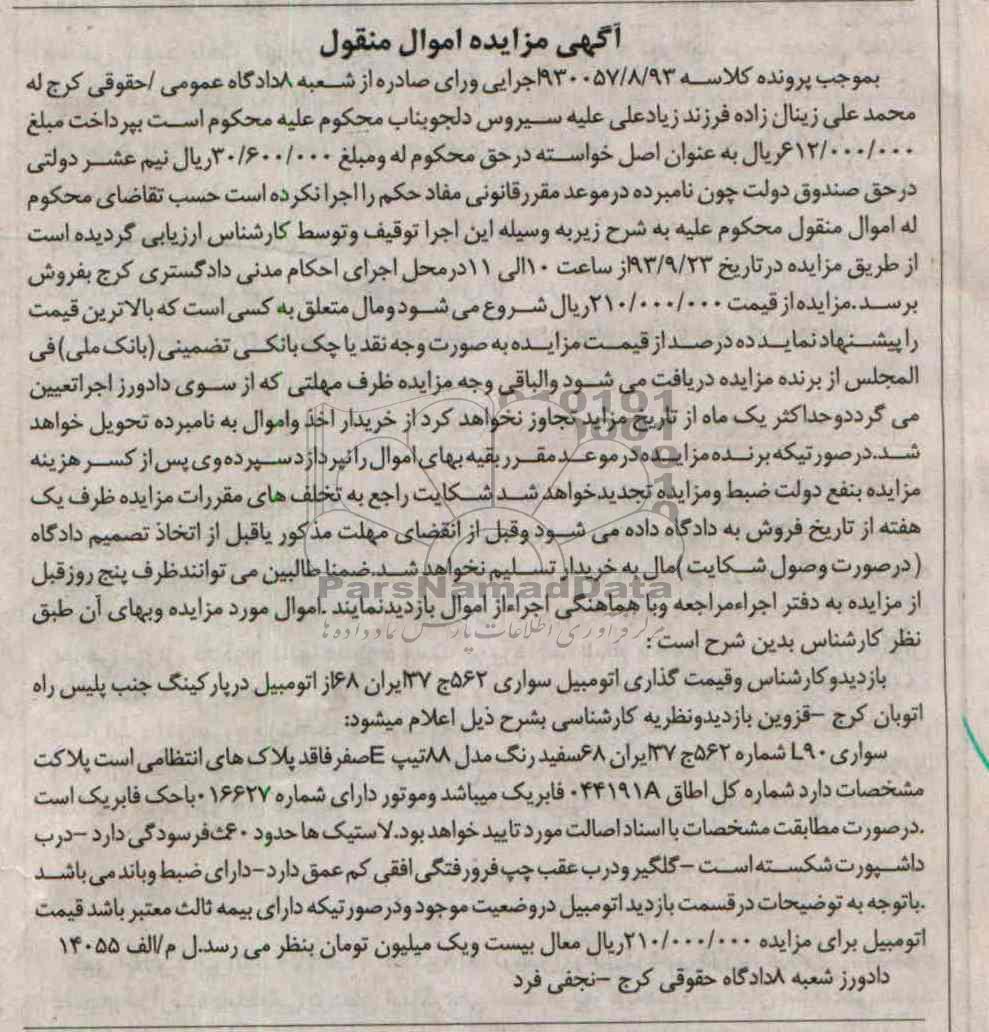 آگهی مزایده اموال منقول
بموجب پرونده کلاسه ۹۳۰۰۵۷/۸/۹۳اجرایی ورای صادره از شعبه ۸دادگاه عمومی /حقوقی کرج له
محمد علی زینال زاده فرزند زیادعلی علیه سیروس دلجویناب محکوم علیه محکوم است بپرداخت مبلغ
۶۱۲/۰۰۰/۰۰۰ریال به عنوان اصل خواسته درحق محکوم له ومبلغ ۳۰/۶۰۰/۰۰۰ریال نیم عشر دولتی
درحق صندوق دولت چون نامبرده درموعد مقررقانونی مفاد حکم را اجرا نکرده است حسب تقاضای محکوم
له اموال منقول محکوم علیه به شرح زیربه وسیله این اجرا توقیف وتوسط کارشناس ارزیابی گردیده است
از طریق مزایده درتاریخ ۹۳/۹/۲۳از ساعت ۱۰الی ۱۱درمحل اجرای احکام مدنی دادگستری کرج بفروش
برسد.مزایده از قیمت ۲۱۰/۰۰۰/۰۰۰ریال شروع می شود ومال متعلق به کسی است که بالاترین قیمت
را پیشنهاد نماید ده درصد از قیمت مزایده به صورت وجه نقد یا چک بانکی تضمینی (بانک ملی) فی
المجلس از برنده مزایده دریافت می شود والباقی وجه مزایده ظرف مهلتی که از سوی دادورز اجراتعیین
می گرددوحداکثر یک ماه از تاریخ مزاید تجاوز نخواهد کرد از خریدار اخذ واموال به نامبرده تحویل خواهد
شد.درصورتیکه برنده مزایده درموعد مقرربقیه بهای اموال رانپردازد سپرده وی پس از کسر هزینه
مزایده بنفع دولت ضبط ومزایده تجدیدخواهد شد شکایت راجع به تخلف های مقررات مزایده ظرف یک
هفته از تاریخ فروش به دادگاه داده می شود وقبل از انقضای مهلت مذکور یاقبل از اتخاذ تصمیم دادگاه
(درصورت وصول شکایت )مال به خریدار تسلیم نخواهد شد.ضمنا طالبین می توانندظرف پنج روزقبل
از مزایده به دفتر اجراءمراجعه وبا هماهنگی اجراءاز اموال بازدیدنمایند .اموال مورد مزایده وبهای آن طبق
نظر کارشناس بدین شرح است:
بازدیدوکارشناس وقیمت گذاری اتومبیل سواری ۵۶۲ج ۳۷ایران ۶۸از اتومبیل درپارکینگ جنب پلیس راه
اتوبان کرج –قزوین بازدیدونظریه کارشناسی بشرح ذیل اعلام میشود:
سواری L۹۰ شماره ۵۶۲ج ۳۷ایران ۶۸سفید رنگ مدل ۸۸تیپ Eصفرفاقد پلاک های انتظامی است پلاکت
مشخصات دارد شماره کل اطاق ۰۴۴۱۹۱A فابریک میباشد وموتور دارای شماره ۰۱۶۶۲۷باحک فابریک است
.درصورت مطابقت مشخصات با اسناد اصالت مورد تایید خواهد بود.لاستیک ها حدود ۶۰ث فرسودگی دارد –درب
داشپورت شکسته است –گلگیر ودرب عقب چپ فرورفتگی افقی کم عمق دارد–دارای ضبط وباند می باشد
.باتوجه به توضیحات درقسمت بازدید اتومبیل دروضعیت موجود ودرصورتیکه دارای بیمه ثالث معتبر باشد قیمت
اتومبیل برای مزایده ۲۱۰/۰۰۰/۰۰۰ریال معال بیست ویک میلیون تومان بنظر می رسد.ل م/الف ۱۴۰۵۵
دادورز شعبه ۸دادگاه حقوقی کرج –نجفی فرد
ParsNamadData
مرکز فرآوری اطلاعات پارس نماد داده ها